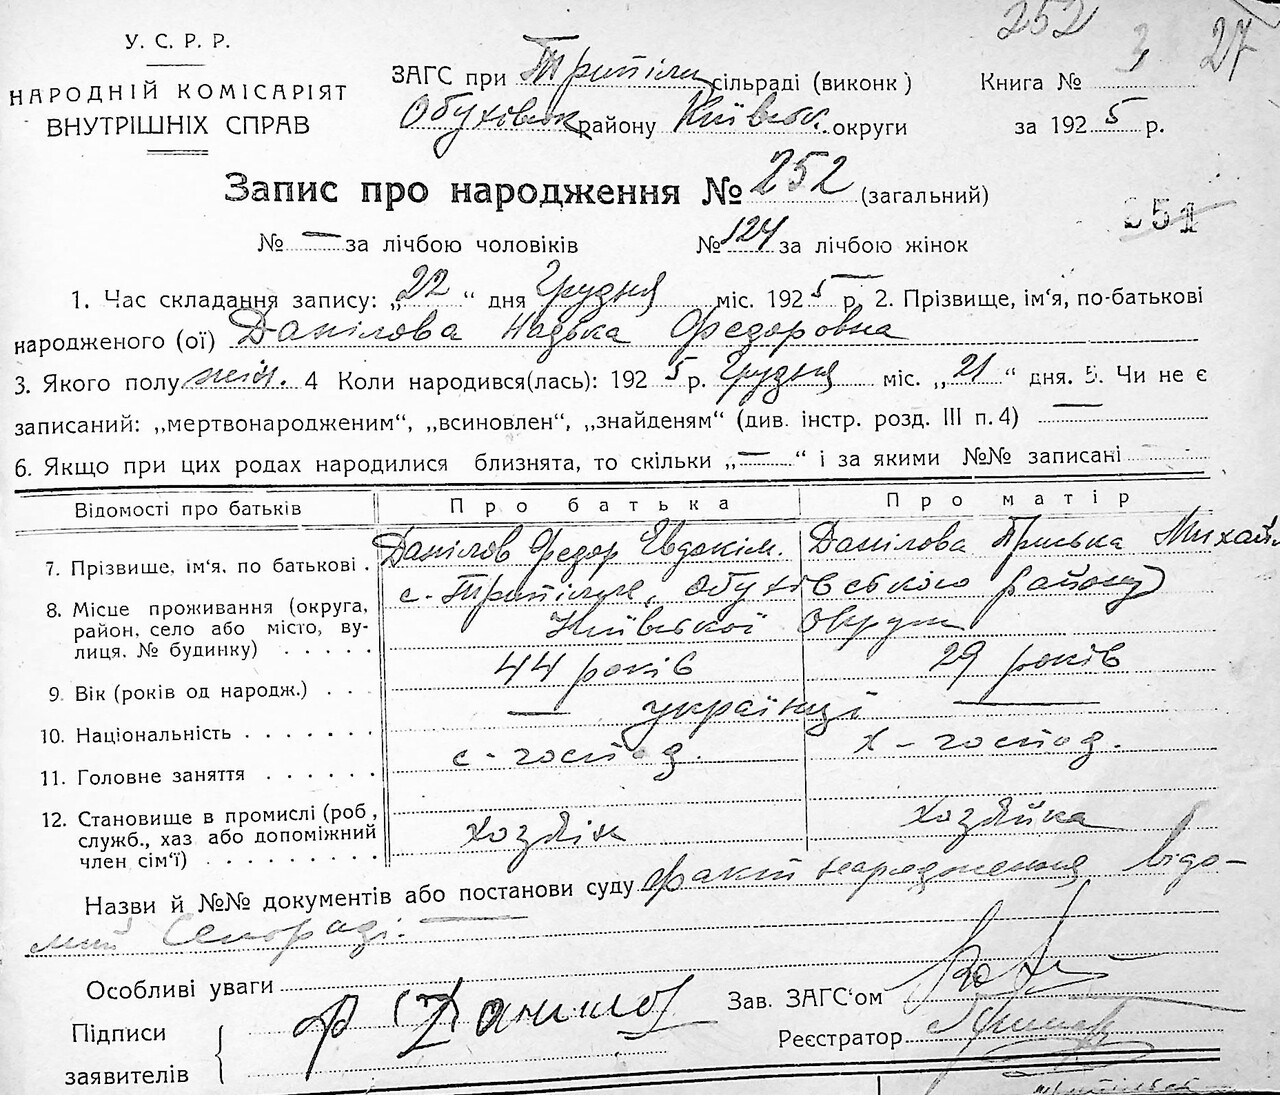 252
3
27
У. С. Р. Р.
НАРОДНІЙ КОМІСАРІЯТ
ВНУТРІШНІХ СПРАВ
ЗАГС при Трипіль сільраді (виконк)
Обухівськ району Київськ. округи
Книга №
за 1925 р.
Запис про народження № 252 (загальний)
№ — за лічбою чоловіків № 124 за лічбою жінок
251
1. Час складання запису: „22“ дня Грудня міс. 1925 р. 2. Прізвище, ім‘я, по-батькові
народженого (ої) Данілова Надька Федоровна
3. Якого полу жін. 4 Коли народився(лась): 1925 р. Грудня міс. „21“ дня. 5. Чи не є
записаний: „мертвонародженим“, „всиновлен“, „знайденям“ (див. інстр. розд. III п. 4) —
6. Якщо при цих родах народилися близнята, то скільки „—“ і за якими №№ записані
Відомості про батьків Про батька Про матір
7. Прізвище, ім‘я, по батькові . Данілов Федор Евдокім. Данілова Приська Михайл
8. Місце проживання (округа, район, село або місто, вулиця, № будинку) . . . . . с. Трипілля, Обухівського району
Київської Округи
9. Вік (років од народж.) . . . 44 років 29 років
10. Національність . . . . . . . — українці —
11. Головне заняття . . . . . . с-господ. х-господ.
12. Становище в промислі (роб., служб., хаз або допоміжний член сім‘ї) . . . . . . . . . Хозяїн Хозяйка
Назви й №№ документів або постанови суду факт народження відо-
мий Сельраді. —
Особливі уваги
Підписи
заявителів
Ф Данилов
Зав. ЗАГС‘ом
Реєстратор